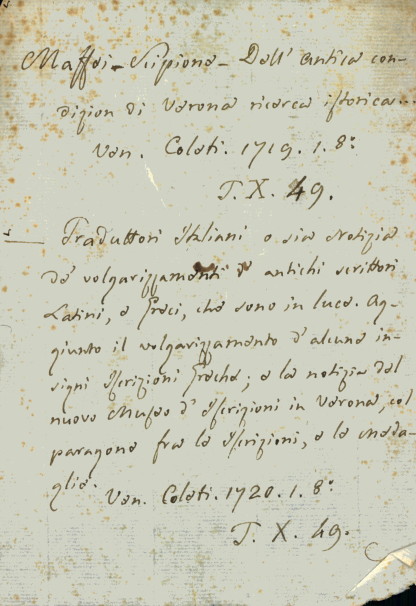 Maffei - Scipione - Dell' antica con-
dizion di Verona ricerca istorica.
Ven. Coleti. 1719. 1. 8º
T. X. 49.
— Traduttori Italiani o sia Notizia
de' volgarizzamenti d' antichi scrittori
Latini, e Greci, che sono in luce. Ag-
giunto il volgarizzamento d' alcune in-
signi Iscrizioni Greche; e la notizia del
nuovo Museo d' Iscrizioni in Verona, col
paragone fra le Iscrizioni, e le meda-
glie. Ven. Coleti. 1720. 1. 8º
T. X. 49.